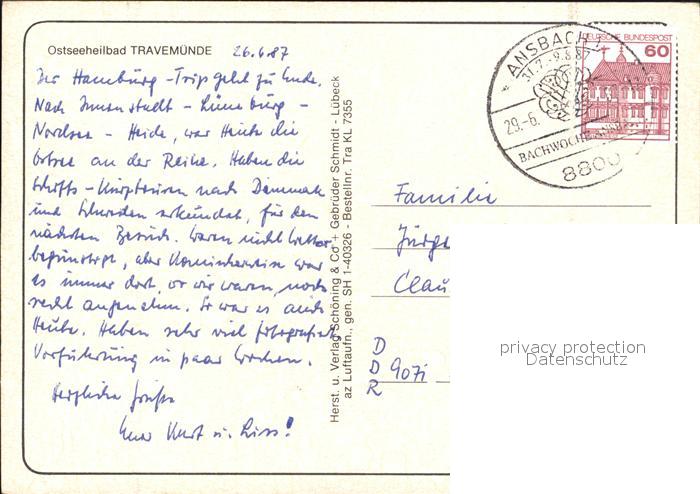 Ostseeheilbad TRAVEMÜNDE 26.6.87
Der Hamburg-Trip geht zu Ende.
Nach Innenstadt - Lüneburg -
Nordsee - Heide, war Heute die
Ostsee an der Reihe. Haben die
Schiffs- nach Dänemark
und Schweden erkundet, für den
nächsten Besuch. Waren nicht Wetter
begünstigt, aber komischerweise war
es immer dort, wo wir waren, noch
recht angenehm. So war es auch
Heute. Haben sehr viel fotografiert
Vorführung in paar Wochen.
Herzliche Grüße
Euer Kurt u. Liss!
Herst. u. Verlag Schöning & Co + Gebrüder Schmidt - Lübeck
az Luftaufn., gen. SH 1-40326 - Bestellnr. Tra KL 7355
ANSBACH
31.7.-9.8.87
29.-6.
BACHWOCHE
8800
DEUTSCHE BUNDESPOST
60
Familie
Jürge
Clau
D
D 9071
R
privacy protection
Datenschutz